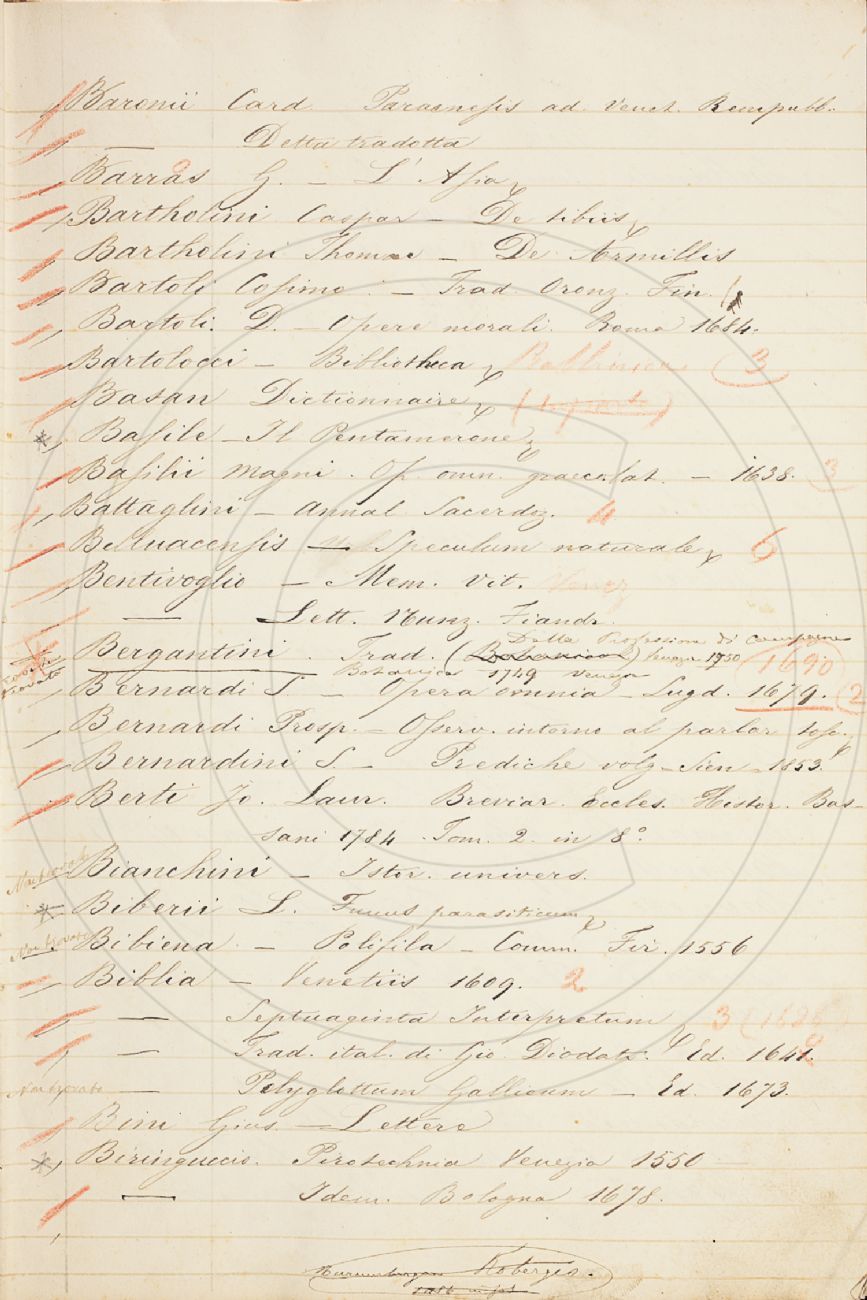 Baronii Card Paraenesis ad. Venet. Rempubb.
— Detta tradotta
Barras G. – L'Asia
Bartholini Caspar – De tibiis
Bartholini Thomae – De Armillis
Bartoli Cosimo – Trad. Oronz. Fin.
Bartoli. D. – Opere morali. Roma 1684.
Bartolocci – Bibliotheca Rabbinica (3
Basan Dictionnaire
* Basile – Il Pentamerone
Basilii Magni. Op. omn. graec. lat. – 1638. 3
Battaglini – Annal Sacerdoz. 4
Belluacensis — Speculum naturale 6
Bentivoglio – Mem. Vit. Venez
— Lett. Nunz. Fiandr.
Della Professione di
Bergantini Trad. (Botanica) 1750 1690
trovato Botanica 1749 Venezia
Bernardi S – Opera omnia – Lugd. 1679. (2
Bernardi Prosp. – Osserv. intorno al parlar tosc.
Bernardini S. – Prediche volg – Sien – 1853
Berti Jo. Laur. Breviar. Eccles. Histor. Bas-
sani 1784 – Tom. 2. in 8°.
Non trovato Bianchini – Istor. univers.
* Biberii L. Funus parasiticum
Non trovato Bibiena – Polifila – Comm. Fir. 1556
Biblia – Venetiis 1609. 2
— Septuaginta Interpretum 3
— Trad. ital. di Gio. Diodati. Ed. 1641.
Non trovato — Polyglottum Gallicum – Ed. 1673.
Bini Gius. – Lettere
* Biringuccio. Pirotechnia Venezia 1550
— Idem. Bologna 1678.
Koberger.